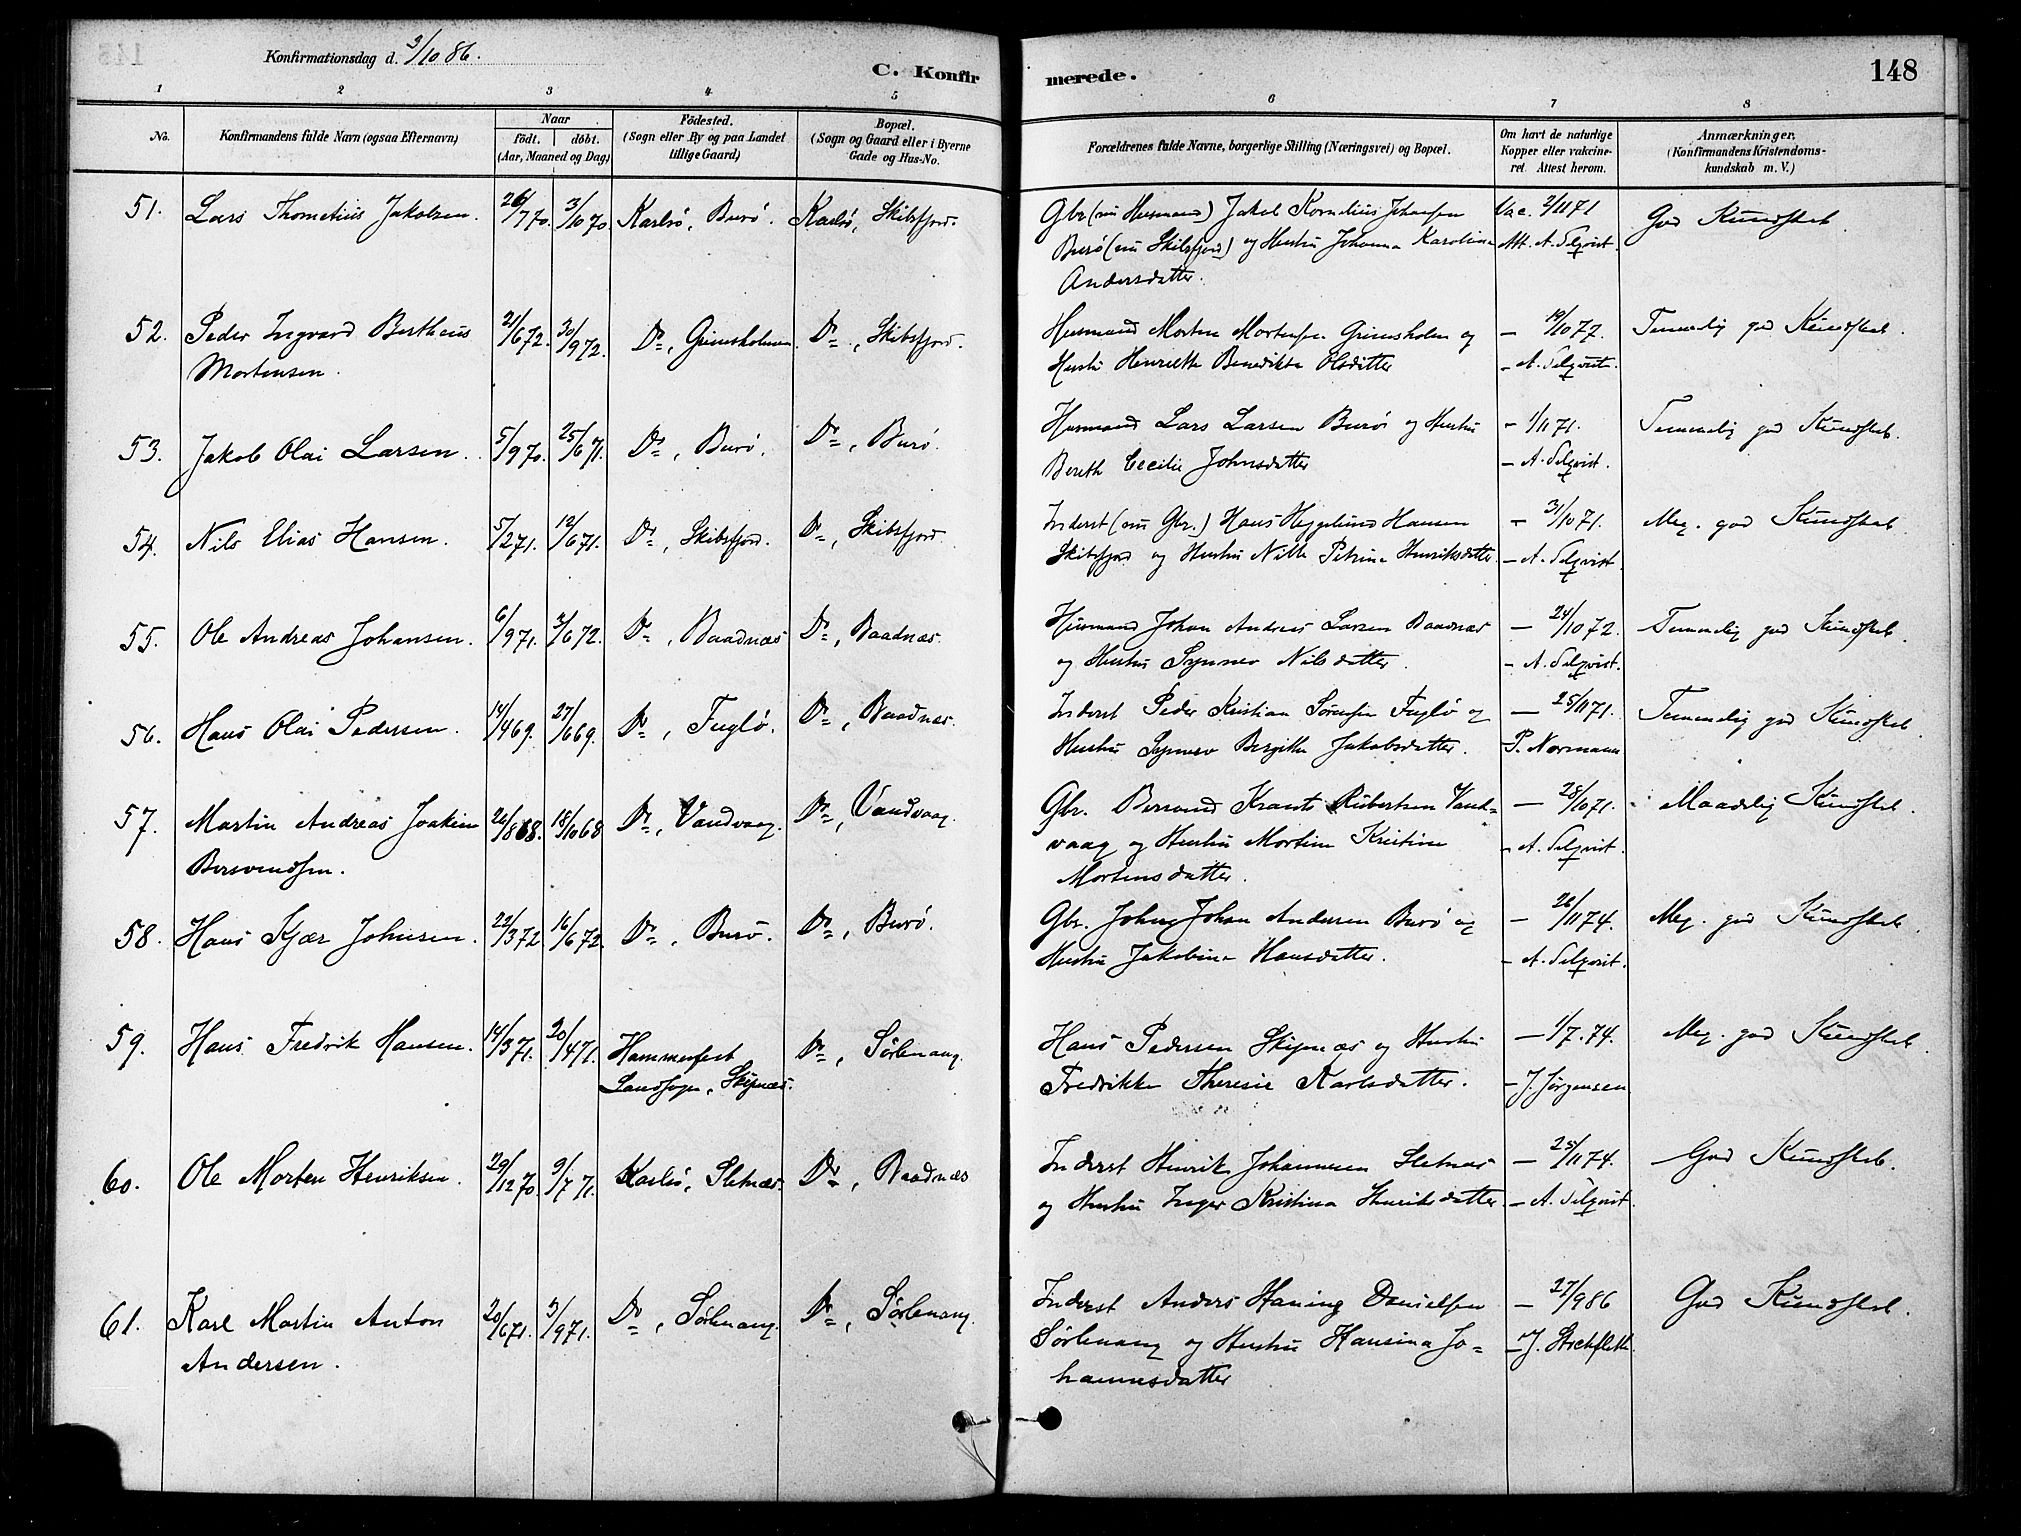 Konfirmationsdag d. 3/10 86.
C. Konfirmerede.
148
1 2 3 4 5 6 7 8
No.
Konfirmandens fulde Navn (ogsaa Efternavn)
Naar
födt. döbt.
(Aar, Maaned og Dag)
Födested.
(Sogn eller By og paa Landet
tillige Gaard)
Bopæl.
(Sogn og Gaard eller i Byerne
Gade og Hus-No.
Forældrenes fulde Navne, borgerlige Stilling (Næringsvei) og Bopæl.
Om havt de naturlige
Kopper eller vakcine-
ret. Attest herom.
Anmærkninger,
(Konfirmandens Kristendoms-
kundskab m. V.)
51. Lars Thometius Jakobsen. 26/7 70. 3/10 70 Karlsö, Burö. Karlsö, Skibsfjord. Gbr (nu Husmand) Jakob Kornelius Johansen Vac. 2/11 71 God Kundskab.
Burö (nu Skibsfjord) og Hustru Johanna Karolina Att. A. Selqvist.
Andersdatter.
52. Peder Ingvard Bertheus 21/6 72. 30/9 72. Do, Grimsholmen. Do, Skibsfjord. Husmand Morten Mortensen Grimsholm og — 19/10 77. Temmelig god Kundskab.
Mortensen. Hustru Henriette Benedikta Olsdatter — A. Selqvist.
53. Jakob Olai Larsen. 5/9 70. 25/6 71. Do, Burö. Do, Burö. Husmand Lars Larsen Burö og Hustru — 1/11 71. Temmelig god Kundskab.
Bereth Cecilie Johnsdatter — A. Selqvist.
54. Nils Elias Hansen. 5/2 71. 12/6 71. Do, Skibsfjord. Do, Skibsfjord Inderst (nu Gbr.) Hans Heggelund Hansen — 31/10 71. Meg. god Kundskab.
Skibsfjord og Hustru Nille Petrina Henriksdatter. — A. Selqvist.
55. Ole Andreas Johansen. 6/9 71. 3/6 72. Do, Baadnæs Do, Baadnæs. Husmand Johan Andreas Larsen Baadnæs — 24/10 72. Temmelig god Kundskab.
og Hustru Synnev Nilsdatter. — A. Selqvist.
56. Hans Olai Pedersen. 14/4 69. 27/6 69. Do, Fuglö. Do, Baadnæs. Inderst Peder Kristian Sörensen Fuglö og — 25/11 71. Temmelig god Kundskab.
Hustru Synnev Bergitte Jakobsdatter. P. Normann
57. Martin Andreas Joakim 26/8 68. 18/10 68 Do, Vandvaag. Do, Vandvaag. Gbr. Bersvend Krantz Rubertsen Vand- — 28/10 71. Maadelig Kundskab.
Bersvendsen. vaag og Hustru Martine Kristine — A. Selqvist.
Mortensdatter.
58. Hans Kjær Johnsen. 22/3 72 16/6 72. Do, Burö. Do, Burö. Gbr. Johan Andersen Burö og — 26/11 74. Meg. god Kundskab.
Hustru Jakobina Hansdatter. — A. Selqvist.
59. Hans Fredrik Hansen. 14/3 71. 20/4 71. Hammerfest Do, Sörlenang. Hans Pedersen Skipnæs og Hustru — 1/7. 74. Meg. god Kundskab.
Landsogn, Skipnæs. Fredrikke Theresie Karlsdatter. — J. Jörgensen
60. Ole Morten Henriksen. 29/12 70. 9/7 71. Karlsö, Sletnæs. Do, Baadnæs Inderst Henrik Johannesen Sletnæs — 25/11 74. God Kundskab.
og Hustru Inger Kristina Henriksdatter. — A. Selqvist.
61. Karl Martin Anton 20/6 71. 3/9 71. Do, Sörlenang. Do, Sörlenang. Inderst Anders Haning Danielsen — 27/9 86 God Kundskab.
Andersen. Sörlenang og Hustru Hansina Jo- — J. Stockfleth.
hannesdatter